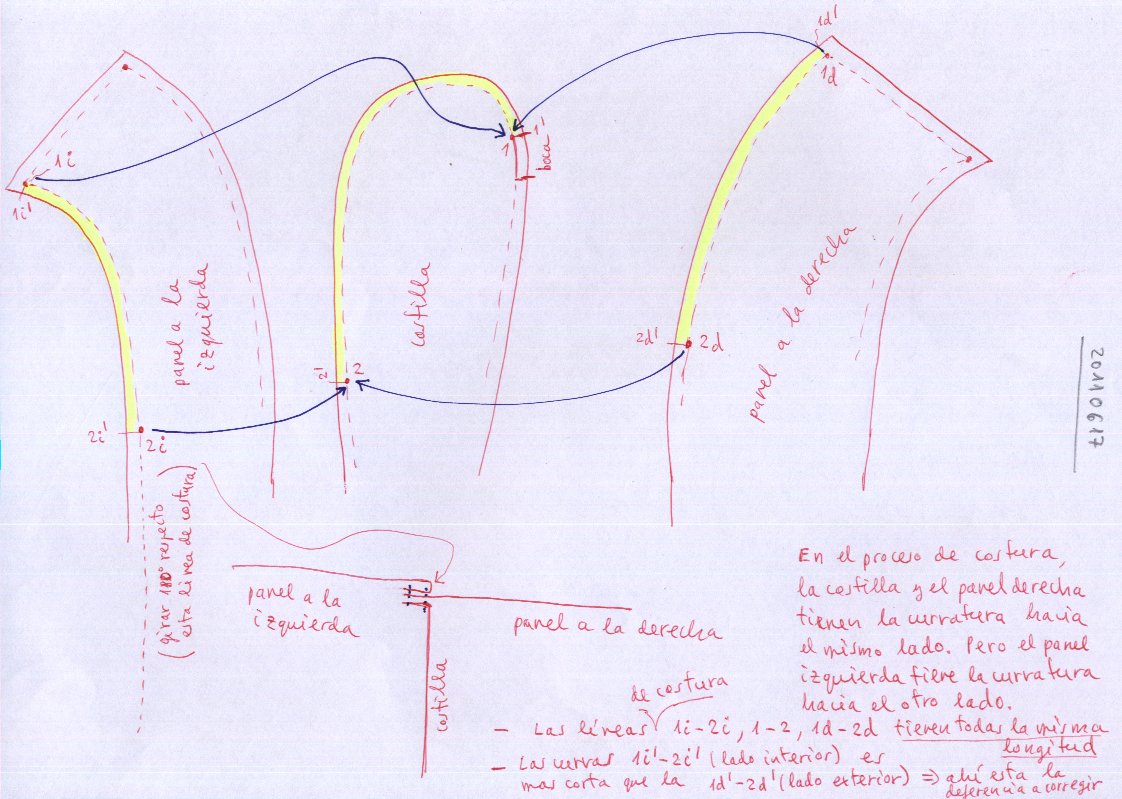 1d'
1d
1i
1i'
1'
1
boca
panel a la
izquierda
costilla
panel a la derecha
2d'
2d
2'
2
2i'
2i
20110617
(girar 180° respecto
esta linea de costura)
panel a la
izquierda
panel a la derecha
costilla
En el proceso de costura,
la costilla y el panel derecha
tienen la curvatura hacia
el mismo lado. Pero el panel
izquierda tiene la curvatura
hacia el otro lado.
de costura
- Las líneas 1i-2i, 1-2, 1d-2d tienen todas la misma
longitud
- Las curvas 1i'-2i' (lado interior) es
mas corta que la 1d'-2d' (lado exterior) => ahí esta la
deferencia a corregir